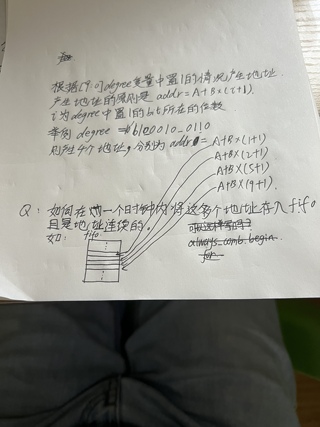 根据[9:0]degree变量中置1的情况产生地址.
产生地址的原则是 addr=A+B×(i+1).
i为degree中置1的bit所在的位数
举例 degree = 'b100010_0110
则产生4个地址,分别为addr0= A+B×(1+1)
A+B×(2+1)
A+B×(5+1)
A+B×(9+1).
Q: 如何在一个时钟内将这多个地址存入fifo
且是地址连续的.
如: fifo
可以这样写吗?
always_comb begin
for